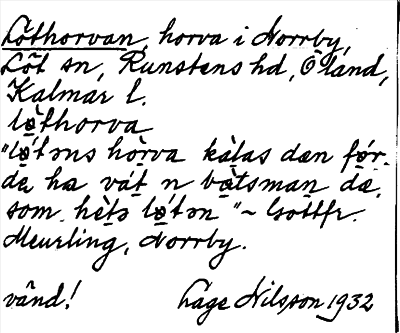 Löthorvan, horva i Norrby,
Löt sn, Runstens hd, Öland,
Kalmar l.
lø̀thorva
"lǿtəns hòrva kàlas dæn fǿr
de hɑ vát n bòtsman dɛ,
som hètə lǿtən" ~ Gottfr.
Meurling, Norrby.
vänd! Låge Nilsson 1932